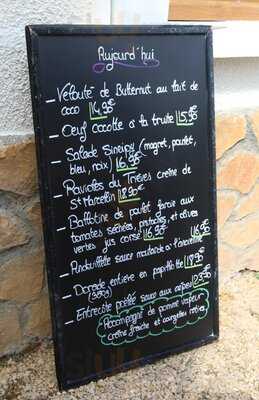 Aujourd'hui
- Velouté de Butternut au lait de
coco 14,90€
- Oeuf cocotte à la truite 15,90€
- Salade Sineipy (magret, poulet,
bleu, noix) 16,90€
- Ravioles du Trièves crème de
St Marcellin 18,90€
- Ballotine de poulet farcie aux
tomates séchées, pistaches, et olives
vertes jus corsé 16,90€
- Andouillette sauce moutarde à l'ancienne 16,90€
- Dorade entière en papillote 18,90€
(300g)
- Entrecôte poêlée sauce aux cèpes 23,90€
Accompagné de pomme vapeur
crème fraîche et courgettes rôties